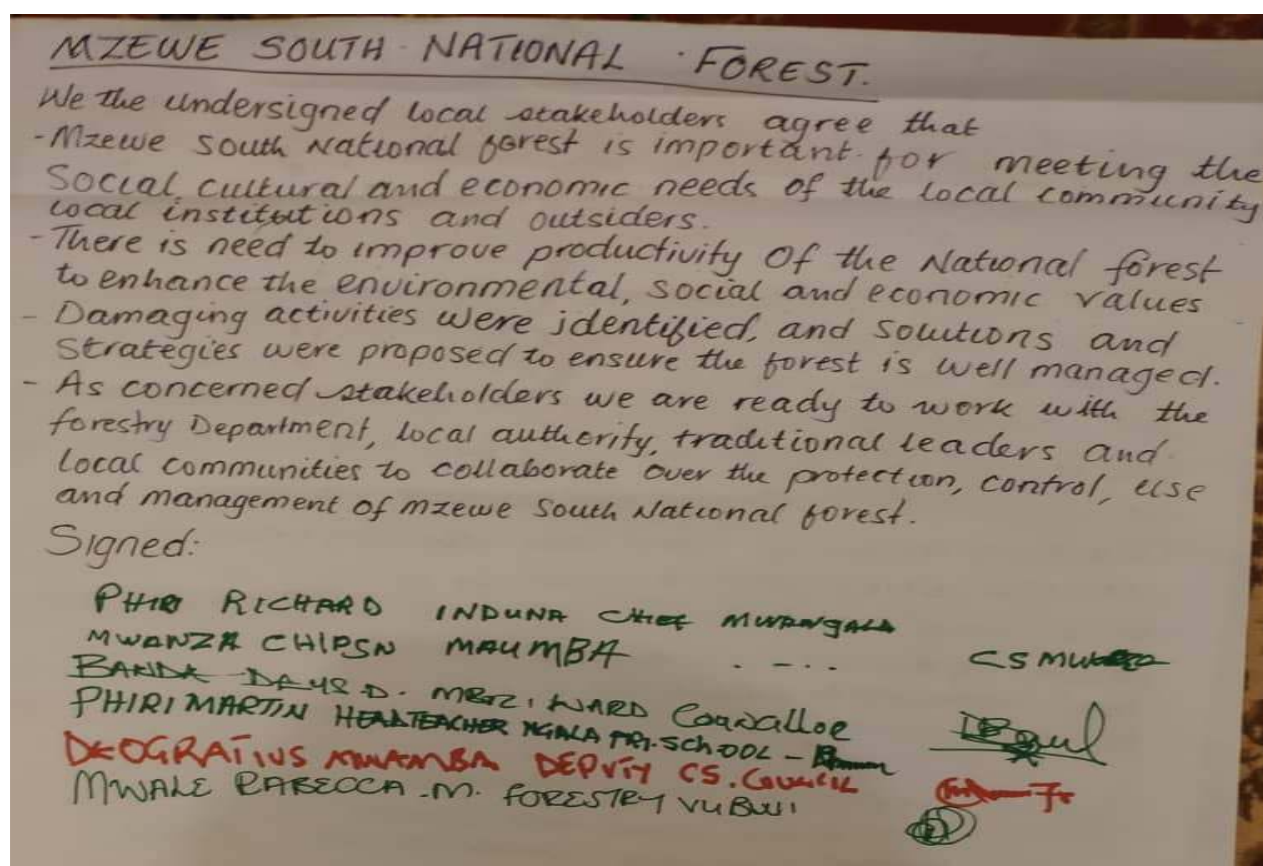 MZEWE SOUTH NATIONAL FOREST.
We the undersigned local stakeholders agree that
- Mzewe South National forest is important for meeting the
Social, cultural and economic needs of the local community
local institutions and outsiders.
- There is need to improve productivity of the National forest
to enhance the environmental, social and economic values
- Damaging activities were identified, and solutions and
Strategies were proposed to ensure the forest is well managed.
- As concerned stakeholders we are ready to work with the
forestry Department, local authority, traditional leaders and
local communities to collaborate over the protection, control, use
and management of mzewe South National forest.
Signed:
PHIRI RICHARD INDUNA CHIEF MWANGALA
MWANZA CHIPSN MAUMBA
BANDA DAYS D. WARD
PHIRI MARTIN HEADTEACHER NGALA PRI. SCHOOL -
DEOGRATIUS MWAMBA DEPUTY CS. COUNCIL
MWALE RABECCA .M. FORESTRY VUBWI